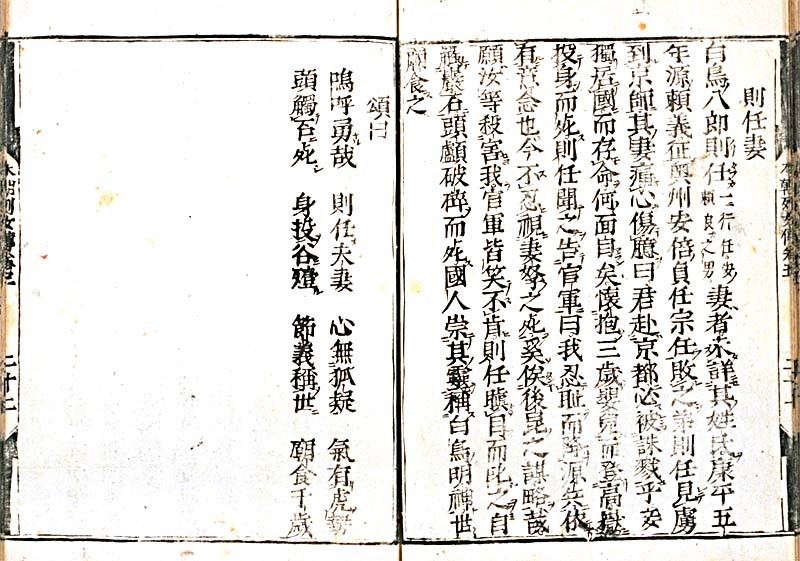 則任妻
白鳥八郎則任頼良之男妻者未詳其姓氏康平五
年源頼義征奥州安倍貞任宗任敗之弟則任見虜
到京師其妻痛心傷臆曰君赴京都必被誅戮乎妾
獨居國而存命何面目矣懷抱三歳嬰兒而登高嶽
投身而死則任聞之告官軍曰我忍耻而降源兵依
有意念也今不忍視妻孥之死奚俟後昆之謀略哉
願汝等殺害我官軍皆笑不肯則任瞋目而叱之自
觸巖石頭顱破碎而死國人崇其靈稱白鳥明神世
廟食之
頌曰
嗚呼勇哉 則任夫妻 心無狐疑 氣有虎勢
頭觸石死 身投谷殪 節義稱世 廟食千歳
本朝列女傳卷五
二十二